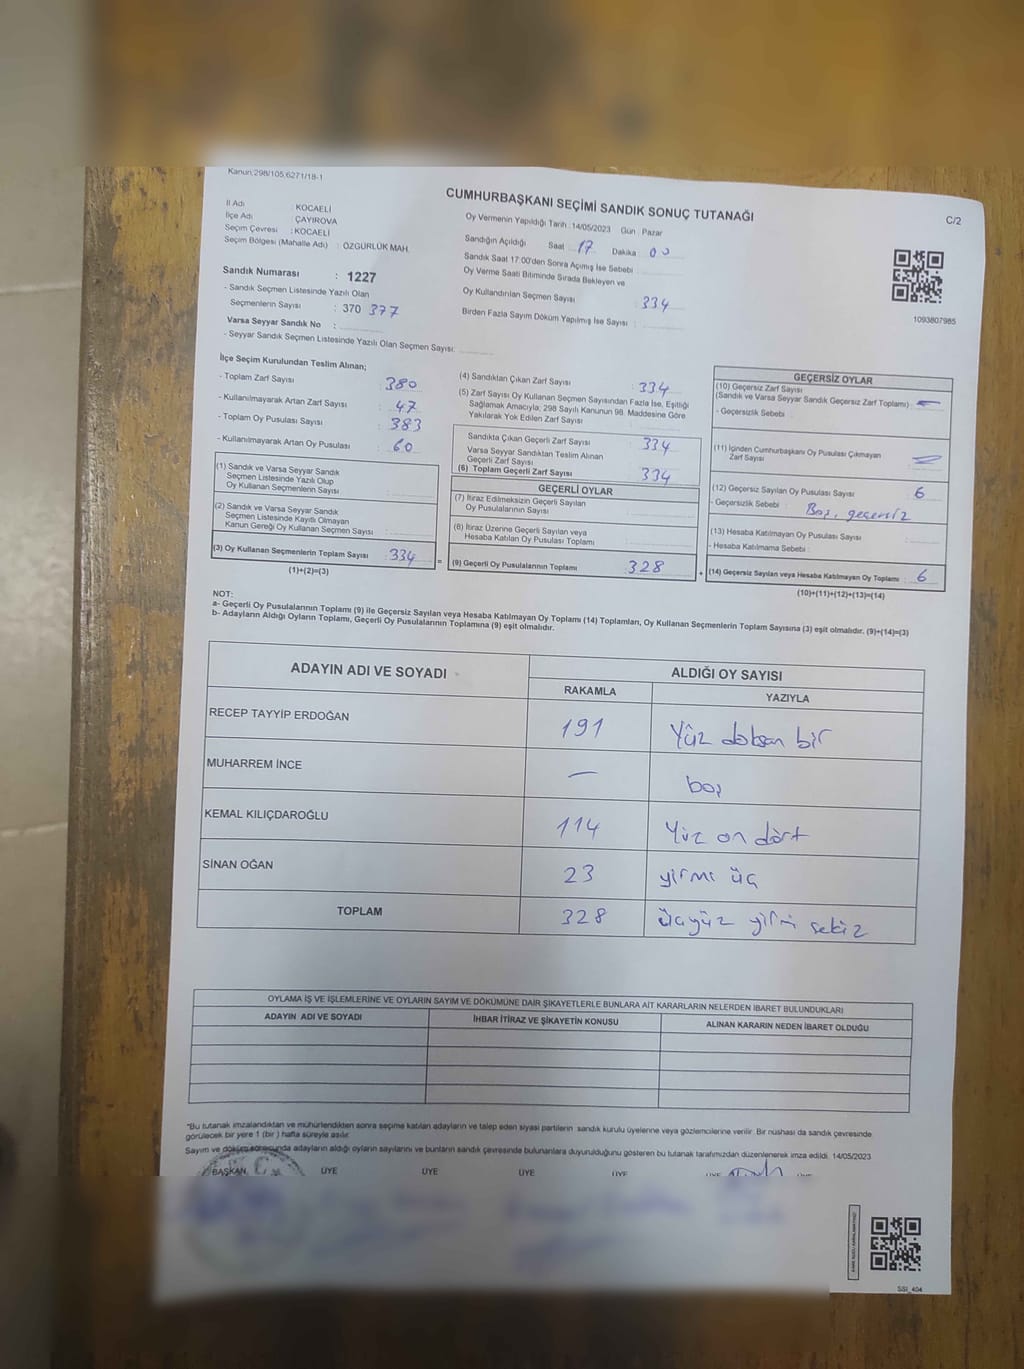 Kanun:298/105,6271/18-1
CUMHURBAŞKANI SEÇİMİ SANDIK SONUÇ TUTANAĞI
C/2
İl Adı KOCAELİ
İlçe Adı ÇAYIROVA
Seçim Çevresi : KOCAELİ
Seçim Bölgesi (Mahalle Adı) : ÖZGÜRLÜK MAH.
Sandık Numarası : 1227
- Sandık Seçmen Listesinde Yazılı Olan
Seçmenlerin Sayısı : 370 377
Varsa Seyyar Sandık No :
- Seyyar Sandık Seçmen Listesinde Yazılı Olan Seçmen Sayısı:
Oy Vermenin Yapıldığı Tarih :14/05/2023 Gün : Pazar
Sandığın Açıldığı Saat : 17 Dakika : 00
Sandık Saat 17:00'den Sonra Açımış İse Sebebi :
Oy Verme Saati Bitiminde Sırada Bekleyen ve
Oy Kullandırılan Seçmen Sayısı : 334
Birden Fazla Sayım Döküm Yapılmış İse Sayısı :
1093807985
İlçe Seçim Kurulundan Teslim Alınan;
- Toplam Zarf Sayısı : 380
- Kullanılmayarak Artan Zarf Sayısı : 47
- Toplam Oy Pusulası Sayısı : 383
- Kullanılmayarak Artan Oy Pusulası : 60
(1) Sandık ve Varsa Seyyar Sandık
Seçmen Listesinde Yazılı Olup
Oy Kullanan Seçmenlerin Sayısı :
(2) Sandık ve Varsa Seyyar Sandık
Seçmen Listesinde Kayıtlı Olmayan
Kanun Gereği Oy Kullanan Seçmen Sayısı :
(3) Oy Kullanan Seçmenlerin Toplam Sayısı : 334 =
(1)+(2)=(3)
(4) Sandıktan Çıkan Zarf Sayısı : 334
(5) Zarf Sayısı Oy Kullanan Seçmen Sayısından Fazla İse, Eşitliği
Sağlamak Amacıyla; 298 Sayılı Kanunun 98. Maddesine Göre
Yakılarak Yok Edilen Zarf Sayısı :
Sandıkta Çıkan Geçerli Zarf Sayısı : 334
Varsa Seyyar Sandıktan Teslim Alınan
Geçerli Zarf Sayısı :
(6) Toplam Geçerli Zarf Sayısı : 334
GEÇERLİ OYLAR
(7) İtiraz Edilmeksizin Geçerli Sayılan
Oy Pusulalarının Sayısı :
(8) İtiraz Üzerine Geçerli Sayılan veya
Hesaba Katılan Oy Pusulası Toplamı :
(9) Geçerli Oy Pusulalarının Toplamı : 328 +
GEÇERSİZ OYLAR
(10) Geçersiz Zarf Sayısı
(Sandık ve Varsa Seyyar Sandık Geçersiz Zarf Toplamı) : —
- Geçersizlik Sebebi :
(11) İçinden Cumhurbaşkanı Oy Pusulası Çıkmayan
Zarf Sayısı :
(12) Geçersiz Sayılan Oy Pusulası Sayısı : 6
- Geçersizlik Sebebi : Boş, geçersiz
(13) Hesaba Katılmayan Oy Pusulası Sayısı :
- Hesaba Katılmama Sebebi :
(14) Geçersiz Sayılan veya Hesaba Katılmayan Oy Toplamı : 6
(10)+(11)+(12)+(13)=(14)
NOT:
a- Geçerli Oy Pusulalarının Toplamı (9) ile Geçersiz Sayılan veya Hesaba Katılmayan Oy Toplamı (14) Toplamları, Oy Kullanan Seçmenlerin Toplam Sayısına (3) eşit olmalıdır. (9)+(14)=(3)
b- Adayların Aldığı Oyların Toplamı, Geçerli Oy Pusulalarının Toplamına (9) eşit olmalıdır.
ADAYIN ADI VE SOYADI ALDIĞI OY SAYISI
RAKAMLA YAZIYLA
RECEP TAYYİP ERDOĞAN 191 Yüz doksan bir
MUHARREM İNCE — boş
KEMAL KILIÇDAROĞLU 114 Yüz on dört
SİNAN OĞAN 23 yirmi üç
TOPLAM 328 üçyüz yirmi sekiz
OYLAMA İŞ VE İŞLEMLERİNE VE OYLARIN SAYIM VE DÖKÜMÜNE DAİR ŞİKAYETLERLE BUNLARA AİT KARARLARIN NELERDEN İBARET BULUNDUKLARI
ADAYIN ADI VE SOYADI İHBAR İTİRAZ VE ŞİKAYETİN KONUSU ALINAN KARARIN NEDEN İBARET OLDUĞU
*Bu tutanak imzalandıktan ve mühürlendikten sonra seçime katılan adayların ve talep eden siyasi partilerin sandık kurulu üyelerine veya gözlemcilerine verilir. Bir nüshası da sandık çevresinde
görülecek bir yere 1 (bir) hafta süreyle asılır.
Sayım ve döküm sonucunda adayların aldığı oyların sayılarını ve bunların sandık çevresinde bulunanlara duyurulduğunu gösteren bu tutanak tarafımızdan düzenlenerek imza edildi. 14/05/2023
BAŞKAN ÜYE ÜYE ÜYE ÜYE ÜYE ÜYE
SSİ_404